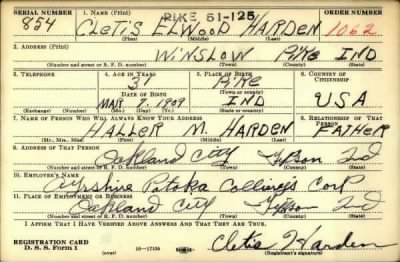 SERIAL NUMBER
854
1. NAME (Print)
PIKE 51-125
CLETIS ELWOOD HARDEN
(First) (Middle) (Last)
ORDER NUMBER
1062
2. ADDRESS (Print)
WINSLOW PIKE IND
(Number and street or R. F. D. number) (Town) (County) (State)
3. TELEPHONE
4. AGE IN YEARS
31
5. PLACE OF BIRTH
PIKE
(Town or county)
6. COUNTRY OF CITIZENSHIP
DATE OF BIRTH
MAR 7, 1909
IND
USA
(Exchange) (Number) (Mo.) (Day) (Yr.) (State or country)
7. NAME OF PERSON WHO WILL ALWAYS KNOW YOUR ADDRESS
8. RELATIONSHIP OF THAT PERSON
HALLER M. HARDEN FATHER
(Mr., Mrs., Miss) (First) (Middle) (Last)
9. ADDRESS OF THAT PERSON
Oakland City Gibson Ind
(Number and street or R. F. D. number) (Town) (County) (State)
10. EMPLOYER'S NAME
Ayrshire Patoka Collieries Corp
11. PLACE OF EMPLOYMENT OR BUSINESS
Oakland City Gibson Ind
(Number and street or R. F. D. number) (Town) (County) (State)
I AFFIRM THAT I HAVE VERIFIED ABOVE ANSWERS AND THAT THEY ARE TRUE.
REGISTRATION CARD
D. S. S. Form 1
16-17105
Cletis Harden
(Registrant's signature)